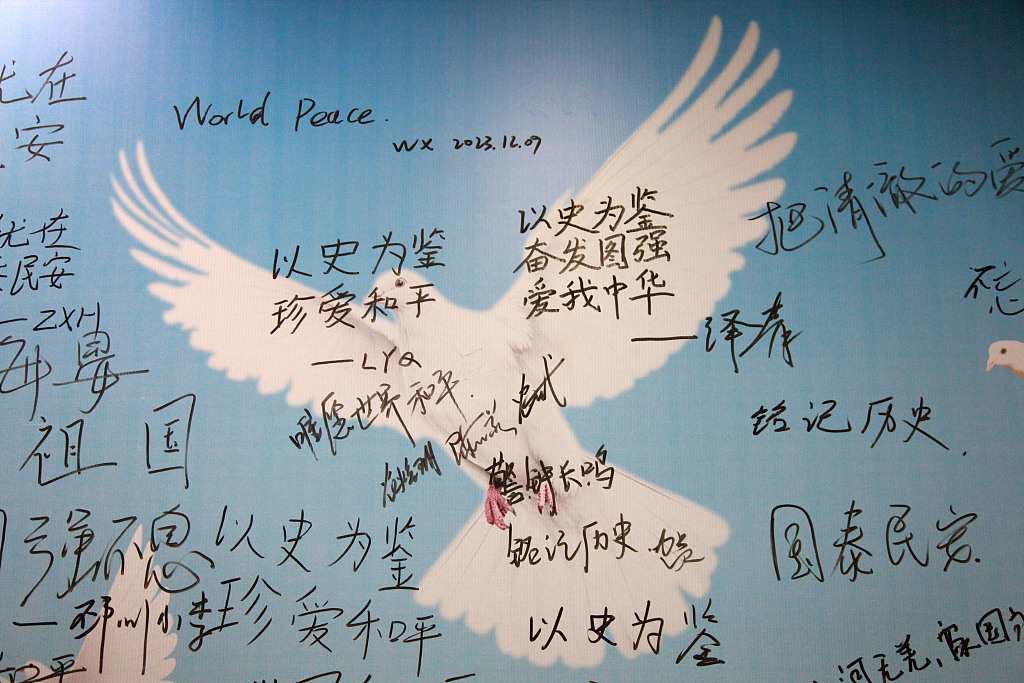 World Peace.
WX 2023.12.09
犹在
安
以史为鉴
奋发图强
爱我中华
把清澈的爱
犹在
民安
—ZXH
以史为鉴
珍爱和平
—LYQ
不忘
唯愿世界和平.
铭记历史.
祖国
警钟长鸣
强不息
铭记历史
国泰民安.
以史为鉴
珍爱和平
小李
以史为鉴
河无羌,家国
和平